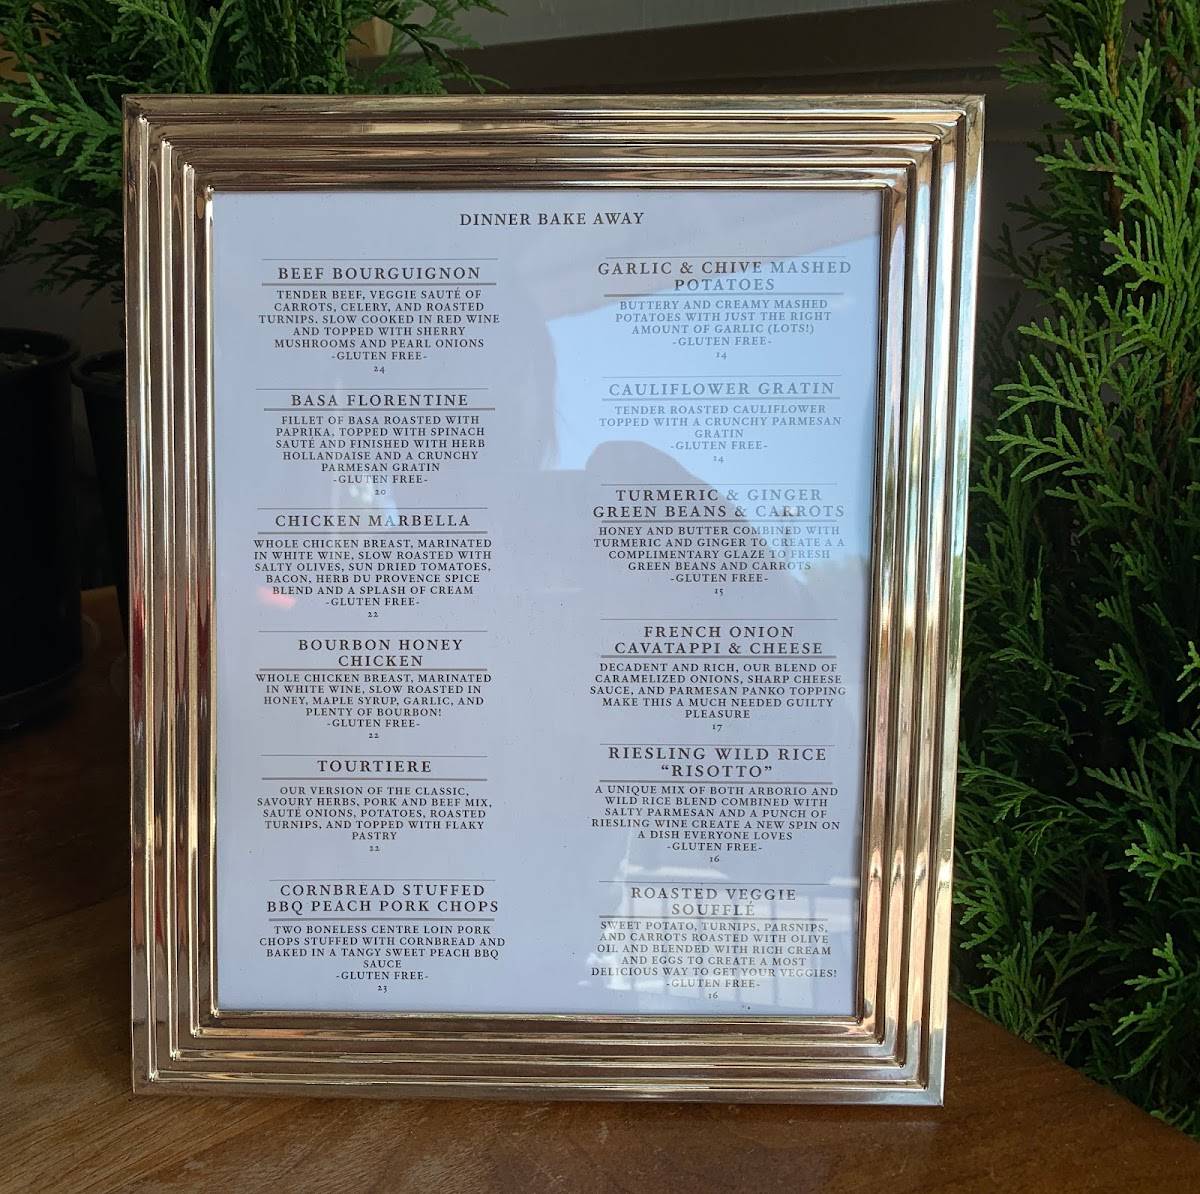 DINNER BAKE AWAY
BEEF BOURGUIGNON
TENDER BEEF, VEGGIE SAUTÉ OF
CARROTS, CELERY, AND ROASTED
TURNIPS. SLOW COOKED IN RED WINE
AND TOPPED WITH SHERRY
MUSHROOMS AND PEARL ONIONS
-GLUTEN FREE-
24
BASA FLORENTINE
FILLET OF BASA ROASTED WITH
PAPRIKA, TOPPED WITH SPINACH
SAUTÉ AND FINISHED WITH HERB
HOLLANDAISE AND A CRUNCHY
PARMESAN GRATIN
-GLUTEN FREE-
20
CHICKEN MARBELLA
WHOLE CHICKEN BREAST, MARINATED
IN WHITE WINE, SLOW ROASTED WITH
SALTY OLIVES, SUN DRIED TOMATOES,
BACON, HERB DU PROVENCE SPICE
BLEND AND A SPLASH OF CREAM
-GLUTEN FREE-
22
BOURBON HONEY
CHICKEN
WHOLE CHICKEN BREAST, MARINATED
IN WHITE WINE, SLOW ROASTED IN
HONEY, MAPLE SYRUP, GARLIC, AND
PLENTY OF BOURBON!
-GLUTEN FREE-
22
TOURTIERE
OUR VERSION OF THE CLASSIC,
SAVOURY HERBS, PORK AND BEEF MIX,
SAUTÉ ONIONS, POTATOES, ROASTED
TURNIPS, AND TOPPED WITH FLAKY
PASTRY
22
CORNBREAD STUFFED
BBQ PEACH PORK CHOPS
TWO BONELESS CENTRE LOIN PORK
CHOPS STUFFED WITH CORNBREAD AND
BAKED IN A TANGY SWEET PEACH BBQ
SAUCE
-GLUTEN FREE-
23
GARLIC & CHIVE MASHED
POTATOES
BUTTERY AND CREAMY MASHED
POTATOES WITH JUST THE RIGHT
AMOUNT OF GARLIC (LOTS!)
-GLUTEN FREE-
14
CAULIFLOWER GRATIN
TENDER ROASTED CAULIFLOWER
TOPPED WITH A CRUNCHY PARMESAN
GRATIN
-GLUTEN FREE-
14
TURMERIC & GINGER
GREEN BEANS & CARROTS
HONEY AND BUTTER COMBINED WITH
TURMERIC AND GINGER TO CREATE A A
COMPLIMENTARY GLAZE TO FRESH
GREEN BEANS AND CARROTS
-GLUTEN FREE-
15
FRENCH ONION
CAVATAPPI & CHEESE
DECADENT AND RICH, OUR BLEND OF
CARAMELIZED ONIONS, SHARP CHEESE
SAUCE, AND PARMESAN PANKO TOPPING
MAKE THIS A MUCH NEEDED GUILTY
PLEASURE
17
RIESLING WILD RICE
“RISOTTO”
A UNIQUE MIX OF BOTH ARBORIO AND
WILD RICE BLEND COMBINED WITH
SALTY PARMESAN AND A PUNCH OF
RIESLING WINE CREATE A NEW SPIN ON
A DISH EVERYONE LOVES
-GLUTEN FREE-
16
ROASTED VEGGIE
SOUFFLÉ
SWEET POTATO, TURNIPS, PARSNIPS,
AND CARROTS ROASTED WITH OLIVE
OIL AND BLENDED WITH RICH CREAM
AND EGGS TO CREATE A MOST
DELICIOUS WAY TO GET YOUR VEGGIES!
-GLUTEN FREE-
16